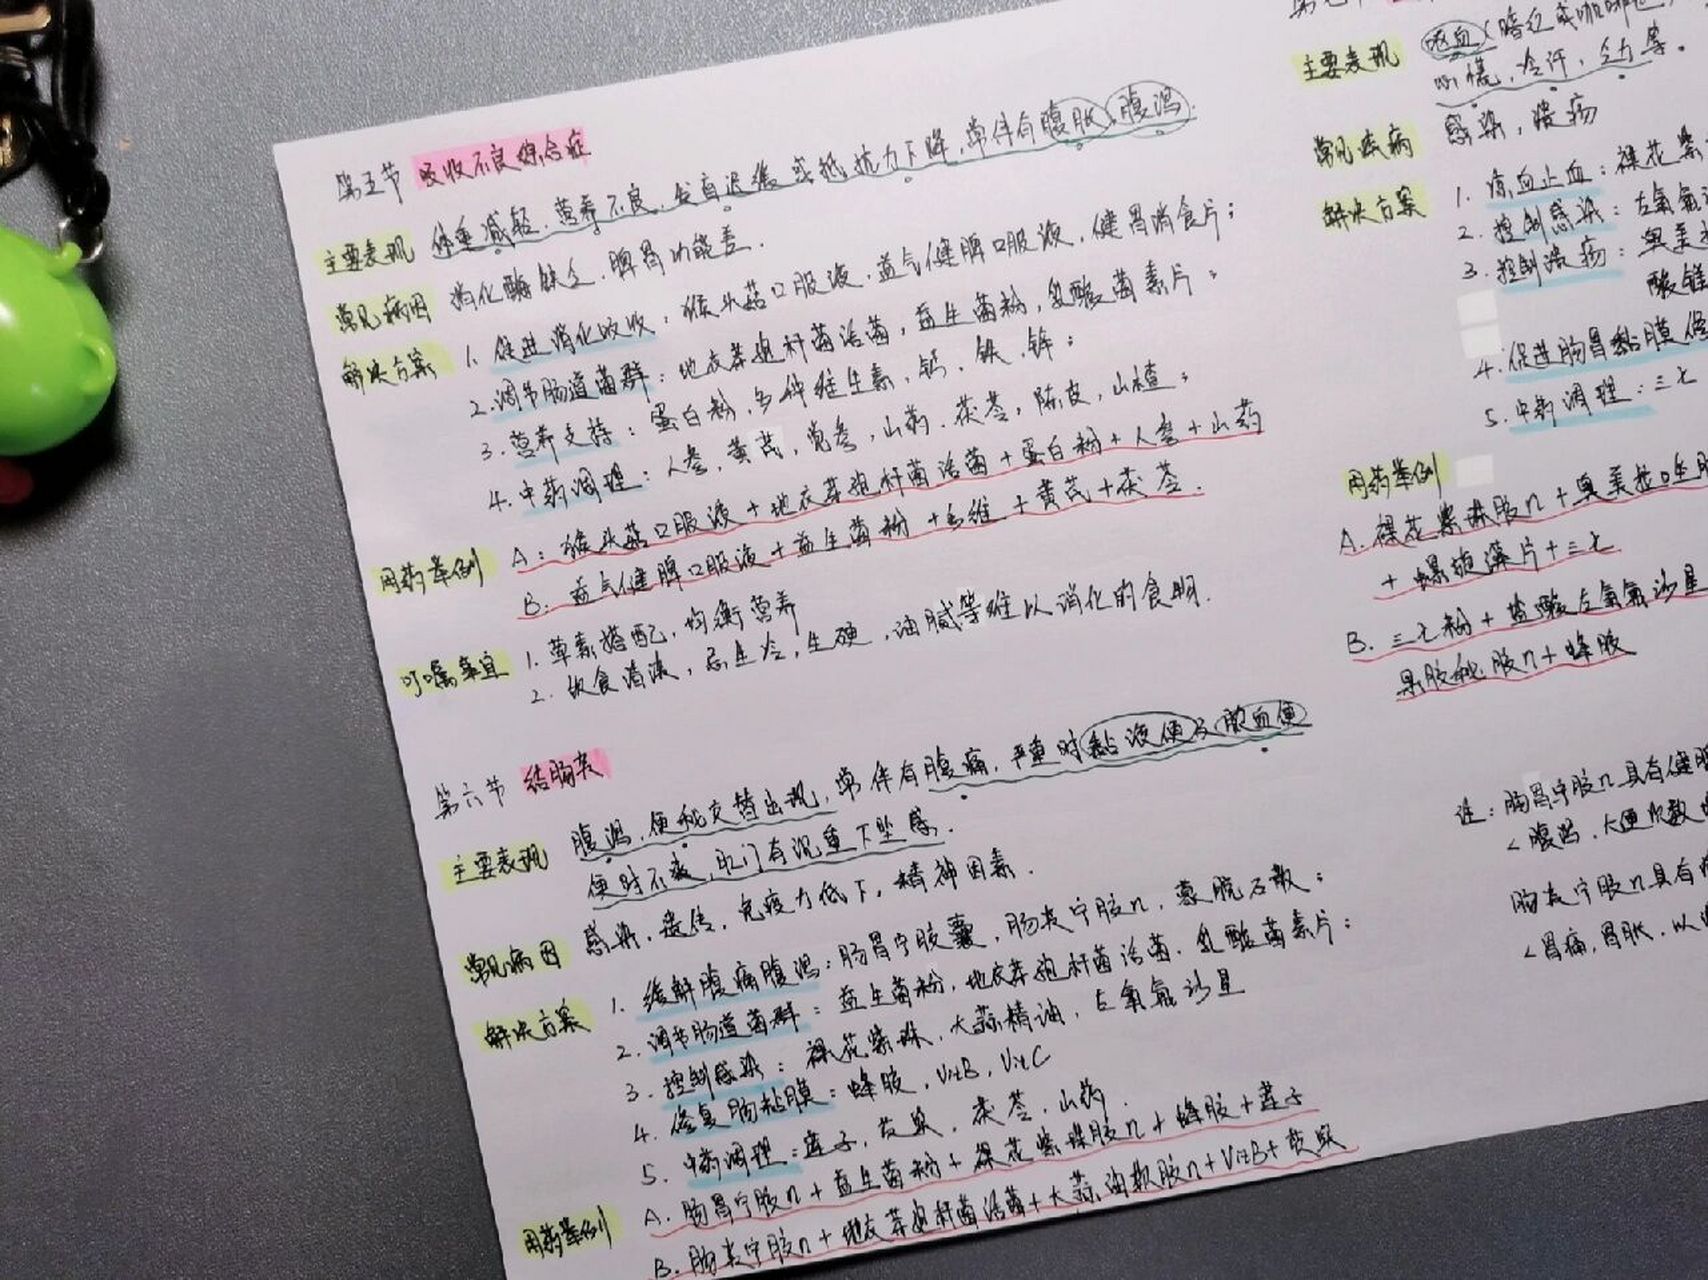 第五节 吸收不良综合症
主要表现 体重减轻、营养不良、发育迟缓或抵抗力下降,常伴有腹胀、腹泻.
常见病因 消化酶缺乏、脾胃功能差.
解决方案 1. 促进消化吸收:猴头菇口服液,益气健脾口服液,健胃消食片;
2. 调节肠道菌群:地衣芽孢杆菌活菌,益生菌粉,乳酸菌素片;
3. 营养支持:蛋白粉,多种维生素,钙、铁、锌;
4. 中药调理:人参,黄芪,党参,山药、茯苓,陈皮,山楂;
用药举例 A:猴头菇口服液+地衣芽孢杆菌活菌+蛋白粉+人参+山药
B:益气健脾口服液+益生菌粉+多维+黄芪+茯苓.
叮嘱事宜 1. 荤素搭配,均衡营养
2. 饮食清淡,忌生冷,生硬,油腻等难以消化的食物.
第六节 结肠炎
主要表现 腹泻、便秘交替出现,常伴有腹痛,严重时黏液便及脓血便
便时不爽,肛门有沉重下坠感.
常见病因 感染、遗传,免疫力低下,精神因素.
解决方案 1. 缓解腹痛腹泻:肠胃宁胶囊,肠炎宁胶n,蒙脱石散;
2. 调节肠道菌群:益生菌粉,地衣芽孢杆菌活菌、乳酸菌素片;
3. 控制感染:裸花紫珠,大蒜精油,左氧氟沙星
4. 修复肠粘膜:蜂胶,VitB,VitC
5. 中药调理:莲子,芡实,茯苓,山药.
用药举例 A. 肠胃宁胶n+益生菌粉+裸花紫珠胶n+蜂胶+莲子
B. 肠炎宁胶n+地衣芽孢杆菌活菌+大蒜油软胶n+VitB+芡实
主要表现 呕血(暗红或咖啡色
心慌,冷汗,乏力等.
常见疾病 感染,溃疡
解决方案 1. 凉血止血:裸花紫
2. 控制感染:左氧氟
3. 控制溃疡:奥美
酸镁
4. 促进肠胃黏膜修
5. 中药调理:三七
用药举例
A. 裸花紫珠胶n+奥美拉唑肠
+螺旋藻片+三七
B. 三七粉+盐酸左氧氟沙星
果胶铋胶n+蜂胶
注:肠胃宁胶n具有健脾
<腹泻、大便次数
肠炎宁胶n具有
<胃痛,胃胀,以